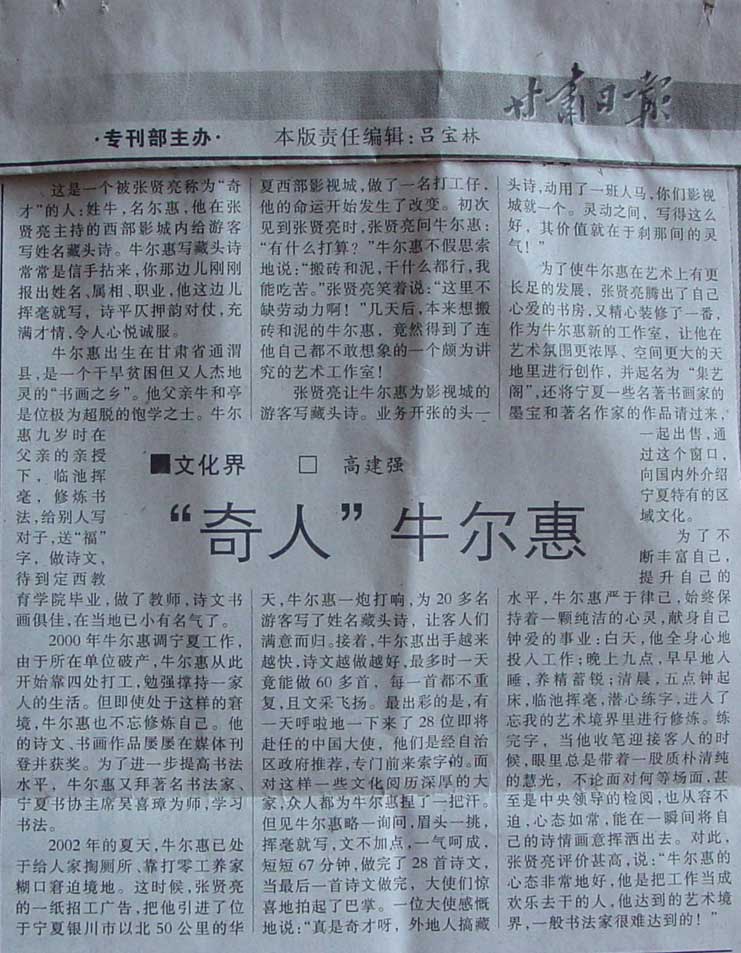 甘肃日报
·专刊部主办·
本版责任编辑:吕宝林
■文化界
□ 高建强
“奇人”牛尔惠
这是一个被张贤亮称为“奇
才”的人:姓牛,名尔惠,他在张
贤亮主持的西部影城内给游客
写姓名藏头诗。牛尔惠写藏头诗
常常是信手拈来,你那边儿刚刚
报出姓名、属相、职业,他这边儿
挥毫就写,诗平仄押韵对仗,充
满才情,令人心悦诚服。
牛尔惠出生在甘肃省通渭
县,是一个干旱贫困但又人杰地
灵的“书画之乡”。他父亲牛和亭
是位极为超脱的饱学之士。牛尔
惠九岁时在
父亲的亲授
下,临池挥
毫,修炼书
法,给别人写
对子,送“福”
字,做诗文,
待到定西教
育学院毕业,做了教师,诗文书
画俱佳,在当地已小有名气了。
2000年牛尔惠调宁夏工作,
由于所在单位破产,牛尔惠从此
开始靠四处打工,勉强撑持一家
人的生活。但即使处于这样的窘
境,牛尔惠也不忘修炼自己。他
的诗文、书画作品屡屡在媒体刊
登并获奖。为了进一步提高书法
水平,牛尔惠又拜著名书法家、
宁夏书协主席吴喜璋为师,学习
书法。
2002年的夏天,牛尔惠已处
于给人家掏厕所、靠打零工养家
糊口窘迫境地。这时候,张贤亮
的一纸招工广告,把他引进了位
于宁夏银川市以北50公里的华
夏西部影视城,做了一名打工仔,
他的命运开始发生了改变。初次
见到张贤亮时,张贤亮问牛尔惠:
“有什么打算?”牛尔惠不假思索
地说:“搬砖和泥,干什么都行,我
能吃苦。”张贤亮笑着说:“这里不
缺劳动力啊!”几天后,本来想搬
砖和泥的牛尔惠,竟然得到了连
他自己都不敢想象的一个颇为讲
究的艺术工作室!
张贤亮让牛尔惠为影视城的
游客写藏头诗。业务开张的头一
天,牛尔惠一炮打响,为20多名
游客写了姓名藏头诗,让客人们
满意而归。接着,牛尔惠出手越来
越快,诗文越做越好,最多时一天
竟能做60多首,每一首都不重
复,且文采飞扬。最出彩的是,有
一天呼啦地一下来了28位即将
赴任的中国大使,他们是经自治
区政府推荐,专门前来索字的。面
对这样一些文化阅历深厚的大
家,众人都为牛尔惠捏了一把汗。
但见牛尔惠略一询问,眉头一挑,
挥毫就写,文不加点,一气呵成,
短短67分钟,做完了28首诗文,
当最后一首诗文做完,大使们惊
喜地拍起了巴掌。一位大使感慨
地说:“真是奇才呀,外地人搞藏
头诗,动用了一班人马,你们影视
城就一个。灵动之间,写得这么
好,其价值就在于刹那间的灵
气!”
为了使牛尔惠在艺术上有更
长足的发展,张贤亮腾出了自己
心爱的书房,又精心装修了一番,
作为牛尔惠新的工作室,让他在
艺术氛围更浓厚、空间更大的天
地里进行创作,并起名为“集艺
阁”,还将宁夏一些名著书画家的
墨宝和著名作家的作品请过来,
一起出售,通
过这个窗口,
向国内外介绍
宁夏特有的区
域文化。
为了不
断丰富自己,
提升自己的
水平,牛尔惠严于律己,始终保
持着一颗纯洁的心灵,献身自己
钟爱的事业:白天,他全身心地
投入工作;晚上九点,早早地入
睡,养精蓄锐;清晨,五点钟起
床,临池挥毫,潜心练字,进入了
忘我的艺术境界里进行修炼。练
完字,当他收笔迎接客人的时
候,眼里总是带着一股质朴清纯
的慧光,不论面对何等场面,甚
至是中央领导的检阅,也从容不
迫,心态如常,能在一瞬间将自
己的诗情画意挥洒出去。对此,
张贤亮评价甚高,说:“牛尔惠的
心态非常地好,他是把工作当成
欢乐去干的人,他达到的艺术境
界,一般书法家很难达到的!”